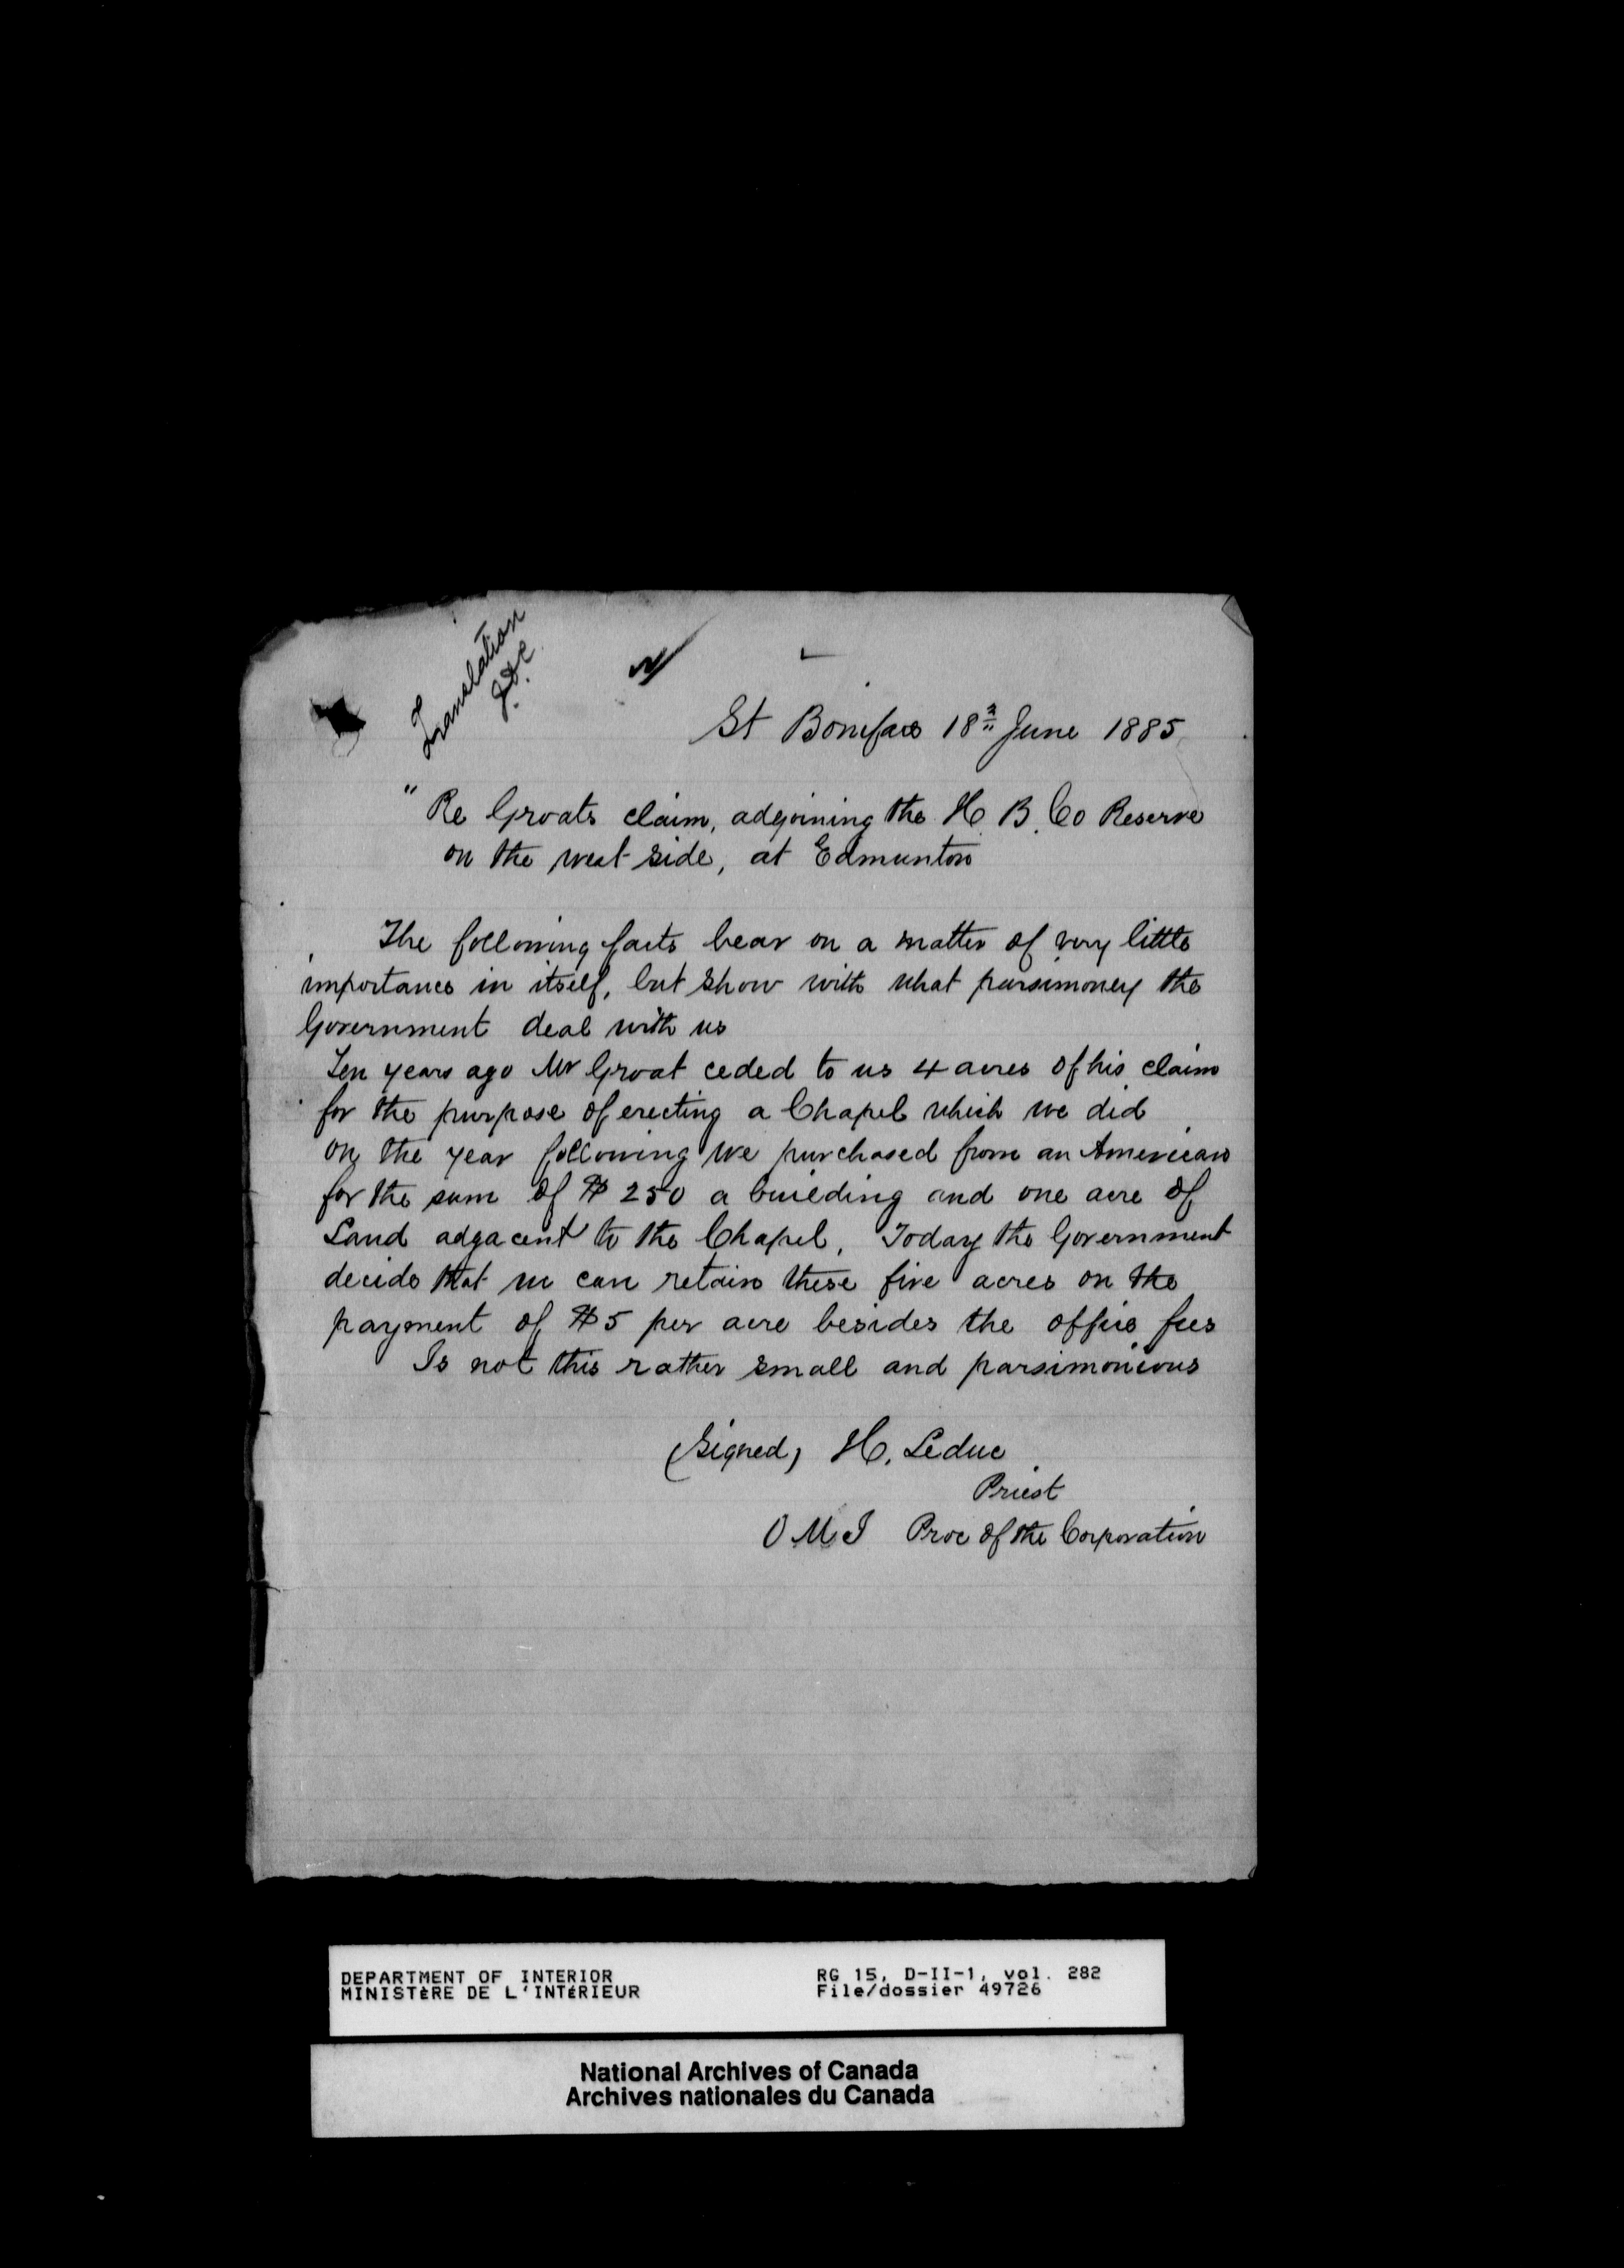 Translation
St Boniface 18th June 1885
" Re Groats claim, adjoining the H. B. Co Reserve
on the west side, at Edmunton
The following facts bear on a matter of very little
importance in itself, but show with what parsimoney the
Government deal with us
Ten years ago Mr Groat ceded to us 4 acres of his claim
for the purpose of erecting a Chapel which we did
on the year following we purchased from an American
for the sum of $250 a building and one acre of
Land adjacent to the Chapel, Today the Government
decide that we can retain these five acres on the
payment of $5 per acre besides the office fees
Is not this rather small and parsimonious
(Signed) H. Leduc
Priest
O M I Proc of the Corporation
DEPARTMENT OF INTERIOR RG 15, D-II-1, vol. 282
MINISTÈRE DE L'INTÉRIEUR File/dossier 49726
National Archives of Canada
Archives nationales du Canada